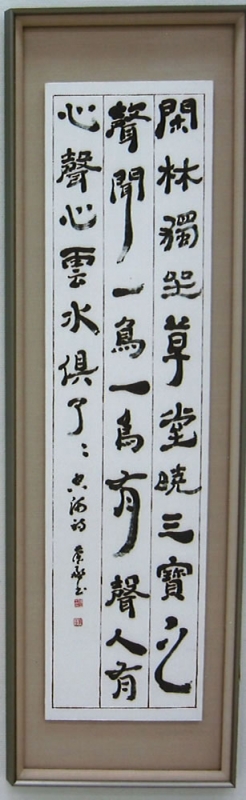 閑林獨坐草堂曉三寶之
聲聞一鳥一鳥有聲人有
心聲心雲水俱了〻空海詩